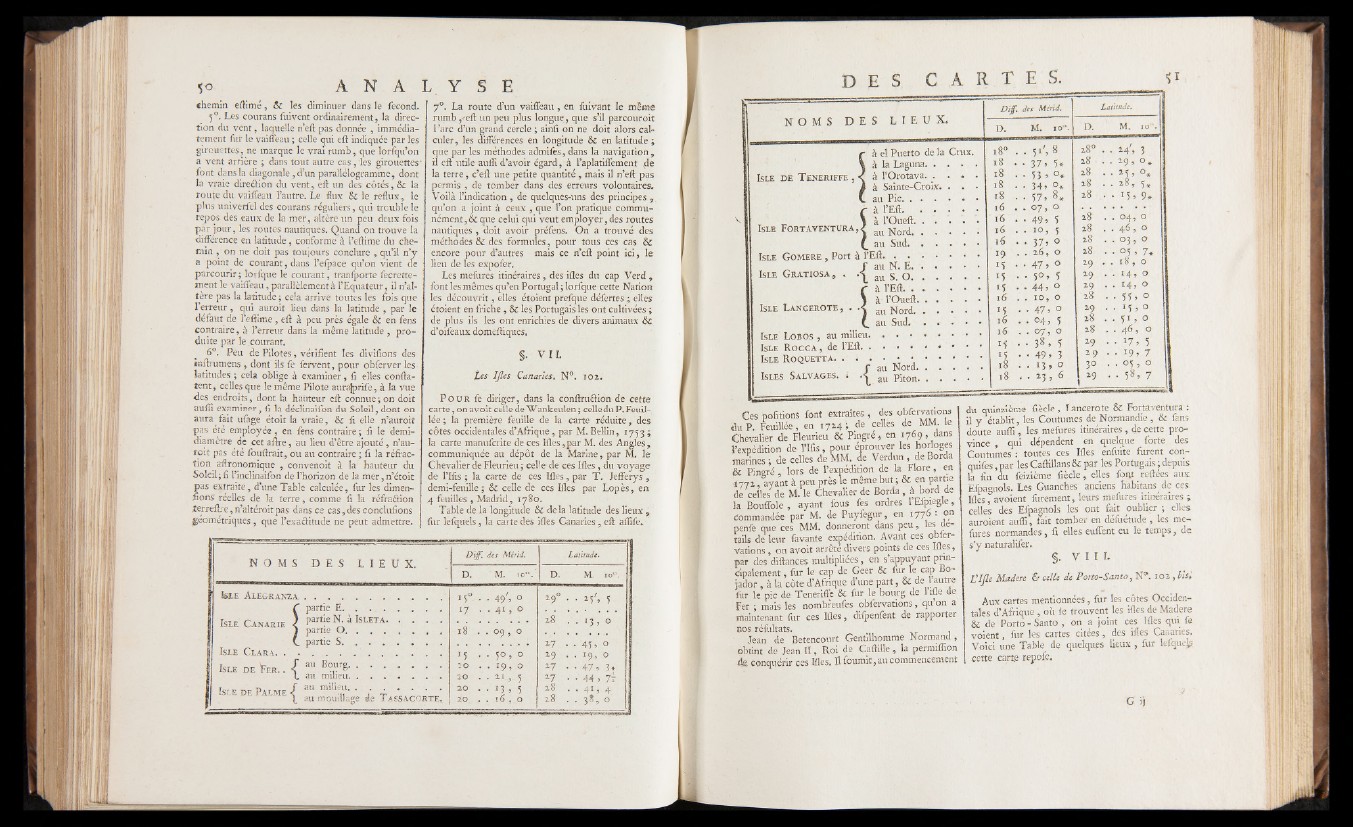 50 ANALYSE
chemin estimé, & les diminuer dans le second.
5°. Les courans suivent ordinairement, la direc-
tion du vent, laquelle n'est pas donnée, immédia-
tement sur le vaisseau; celle qui est indiquée par les
girouettes, ne marque le vrai rumb, que lorsqu'on
a vent arrière; dans tout autre cas, les girouettes
font dans la diagonale, d'un parallélogramme, dont
la vraie direction du vent, est un des côtés, & la
route du vaisseau l'autre. Le flux & le reflux, le
plus universel des courans réguliers, qui trouble le
repos des eaux de la mer, altère un peu deux fois
par jour, les routes nautiques. Quand on trouve la
différence en latitude, conforme à l'estime du che-
min, on ne doit pas toujours conclure, qu'il n'y
a point de courant, dans l'espace qu'on vient de
parcourir; lorsque le courant, transporte secrette-
ment le vaisseau, parallèlement à l'Equateur, il n'al-
tère pas la latitude; cela arrive toutes les fois que
l'erreur, qui auroit lieu dans la latitude, par le
défaut de l'estime, est à peu près égale & en sens
contraire, à l'erreur dans la même latitude, pro-
duite par le courant.
6°. Peu de Pilotes, vérifient les divisions des
instrumens, dont ils se servent, pour observer les
latitudes; cela oblige à examiner, si elles consta-
tent, celles que le même Pilote aura prise, à la vue
des endroits, dont la hauteur est connue; on doit
aussi examiner, si la déclinaison du Soleil, dont on
aura fait usage étoit la vraie, & si elle n'auroit
pas été employée, en sens contraire; si le demi-
diamètre de cet astre, au lieu d'être ajouté, n'au-
roit pas été soustrait, ou au contraire; si la réfrac-
tion astronomique, convenoit à la hauteur du
Soleil; si l'inclinaison de l'horizon de la mer, n'étoit
pas extraite, d'une Table calculée, sur les dimen-
sions réelles de la terre, comme si la réfraction
terrestre, n'altéroit pas dans ce cas, des conclusions
géométriques, que l'exactitude ne peut admettre.
7°. La route d'un vaisseau, en suivant le même
rumb, est un peu plus longue, que s'il parcouroit
l'arc d'un grand cercle; ainsi on ne doit alors cal-
culer, les différences en longitude & en latitude;
que par les méthodes admises, dans la navigation,
il est utile aussi d'avoir égard, à l'aplatissement de
la terre, c'est une petite quantité, mais il n'est pas
permis, de tomber dans des erreurs volontaires.
Voilà l'indication, de quelques-uns des principes,
qu'on a joint à ceux, que l'on pratique commu-
nément, & que celui qui veut employer, des routes
nautiques, doit avoir présens. On a trouvé des
méthodes & des formules, pour tous ces cas &
encore pour d'autres mais ce n'est point ici, le
lieu de les exposer.
Les mesures itinéraires, des isles du cap Verd,
sont les mêmes qu'en Portugal; lorsque cette Nation
les découvrit, elles étoient presque désertes; elles
étoient en friche, & les Portugais les ont cultivées;
de plus ils les ont enrichies de divers animaux &
d'oiseaux domestiques.
§. VII.
Les Isles Canaries. N°. 102.
POUR se diriger, dans la construction de cette
carte, on avoit celle de Wankeulen; celle du P. Feuil-
lée; la première feuille de la carte réduite, des
côtes occidentales d'Afrique, par M. Bellin, 1753;
la carte manuscrite de ces Isles, par M. des Anglés,
communiquée au dépôt de la Marine, par M. le
Chevalier de Fleurieu; celle de ces Isles, du voyage
de l'Isis; la carte de ces Isles, par T. Jefferys,
demi-feuille; & celle de ces Isles par Lopès, en
4 feuilles, Madrid, 1780.
Table de la longitude & de la latitude des lieux,
sur lesquels, la carte des isles Canaries, est assise.
NOMS DES LIEUX. Diff. des Mérid. Latitude.
D. M. 10". D. M. 10".
ISLE ALEGRANZA . . . 15° . . 49', 0 29° . . 25', 5
ISLE CANARIE { partie E. . . . 17 . . 41, 0 . . .
partie N. à ISLETA. . . . 28 . . 13, 0
partie O. . . . 18 . . 09, 0 . . .
partie S. . . . 27 . . 45, 0
ISLE CLARA. . . . 15 . . 50, 0 29 . . 19, 0
ISLE DE FER. . { au Bourg. . . . 20 . . 19, 0 27 . . 47, 3*
au milieu. . . . 20 . . 21, 5 27 . . 44, 7½
ISLE DE PALME { au milieu. . . . 20 . . 13, 5 28 . . 41, 4
au mouillage de TASSACORTE. 20 . . 16, 0 28 . . 38, 0
DES CARTES. 51
NOMS DES LIEUX. Diff. des Mérid. Latitude.
D. M. 10". D. M. 10".
ISLE DE TENERIFFE, { à el Puerto de la Crux. 18° . . 51', 8 28° . . 24', 3
à la Laguna. . . . 18 . . 37, 5* 28 . . 29, 0*
à l'Orotava. . . . 18 . . 53, 0* 28 . . 25, 0*
à Sainte-Croix. . . . 18 . . 34, 0* 28 . . 28, 5*
au Pic. . . . 18 . . 57, 8* 28 . . 15, 9*
ISLE FORTAVENTURA, { à l'Est. . . . 16 . . 07, 0 . . .
à l'Ouest. . . . 16 . . 49, 5 28 . . 04, 0
au Nord. . . . 16 . . 10, 5 28 . . 46, 0
au Sud. . . . 16 . . 37, 0 28 . . 03, 0
ISLE GOMERE, Port à l'Est. . . . 19 . . 26, 0 28 . . 05, 7*
ISLE GRATIOSA, . . { au N. E. . . . 15 . . 47, 0 29 . . 18, 0
au S. O. . . . 15 . . 50, 5 29 . . 14, 0
ISLE LANCEROTE, . . { à l'Est. . . . 15 . . 44, 0 29 . . 14, 0
à l'Ouest. . . . 16 . . 10, 0 28 . . 55, 0
au Nord. . . . 15 . . 47, 0 29 . . 15, 0
au Sud. . . . 16 . . 04, 5 28 . . 51, 0
ISLE LOBOS, au milieu. . . . 16 . . 07, 0 28 . . 46, 0
ISLE ROCCA, de l'Est. . . . 15 . . 38, 5 29 . . 17, 5
ISLE ROQUETTA. . . . 15 . . 49, 3 29 . . 19, 7
ISLES SALVAGES. . { au Nord. . . . 18 . . 13, 0 30 . . 05, 0
au Piton. . . . 18 . . 23, 6 29 . . 58, 7
Ces positions sont extraites, des observations
du P. Feuillée, en 1724; de celles de MM. le
Chevalier de Fleurieu & Pingré, en 1769, dans
l'expédition de l'Isis, pour éprouver les horloges
marines; de celles de MM. de Verdun, de Borda
& Pingré, lors de l'expédition de la Flore, en
1772, ayant à peu près le même but; & en partie
de celles de M. le Chevalier de Borda, à bord de
la Boussole, ayant sous ses ordres l'Espiegle,
commandée par M. de Puységur, en 1776: on
pense que ces MM. donneront dans peu, les dé-
tails de leur savante expédition. Avant ces obser-
vations, on avoit arrêté divers points de ces Isles,
par des distances multipliées, en s'appuyant prin-
cipalement, sur le cap de Geer & sur le cap Bo-
jador, à la côte d'Afrique d'une part, & de l'autre
sur le pic de Teneriffe & sur le bourg de l'isle de
Fer; mais les nombreuses observations, qu'on a
maintenant sur ces Isles, dispensent de rapporter
nos résultats.
Jean de Betencourt Gentilhomme Normand,
obtint de Jean II, Roi de Castille, la permission
de conquérir ces Isles. Il soumit, au commencement
du quinzième siècle, Lancerote & Fortaventura:
il y établit, les Coutumes de Normandie, & sans
doute aussi, les mesures itinéraires, de cette pro-
vince, qui dépendent en quelque sorte des
Coutumes: toutes ces Isles ensuite furent con-
quises, par les Castillans & par les Portugais; depuis
la fin du seizième siècle, elles sont restées aux
Espagnols. Les Guanches anciens habitans de ces
Isles, avoient surement, leurs mesures itinéraires;
celles des Espagnols les ont fait oublier; elles
auroient aussi, fait tomber en désuétude, les me-
sures normandes, si elles eussent eu le temps, de
s'y naturaliser.
§. VIII.
L'Isle Madere & celle de Porto-Santo, N°. 102, bis.
Aux cartes mentionnées, sur les côtes Occiden-
tales d'Afrique, où se trouvent les isles de Madere
& de Porto-Santo, on a joint ces Isles qui se
voient, sur les cartes citées, des isles Canaries.
Voici une Table de quelques lieux, sur lesquels
cette carte repose.
G ij